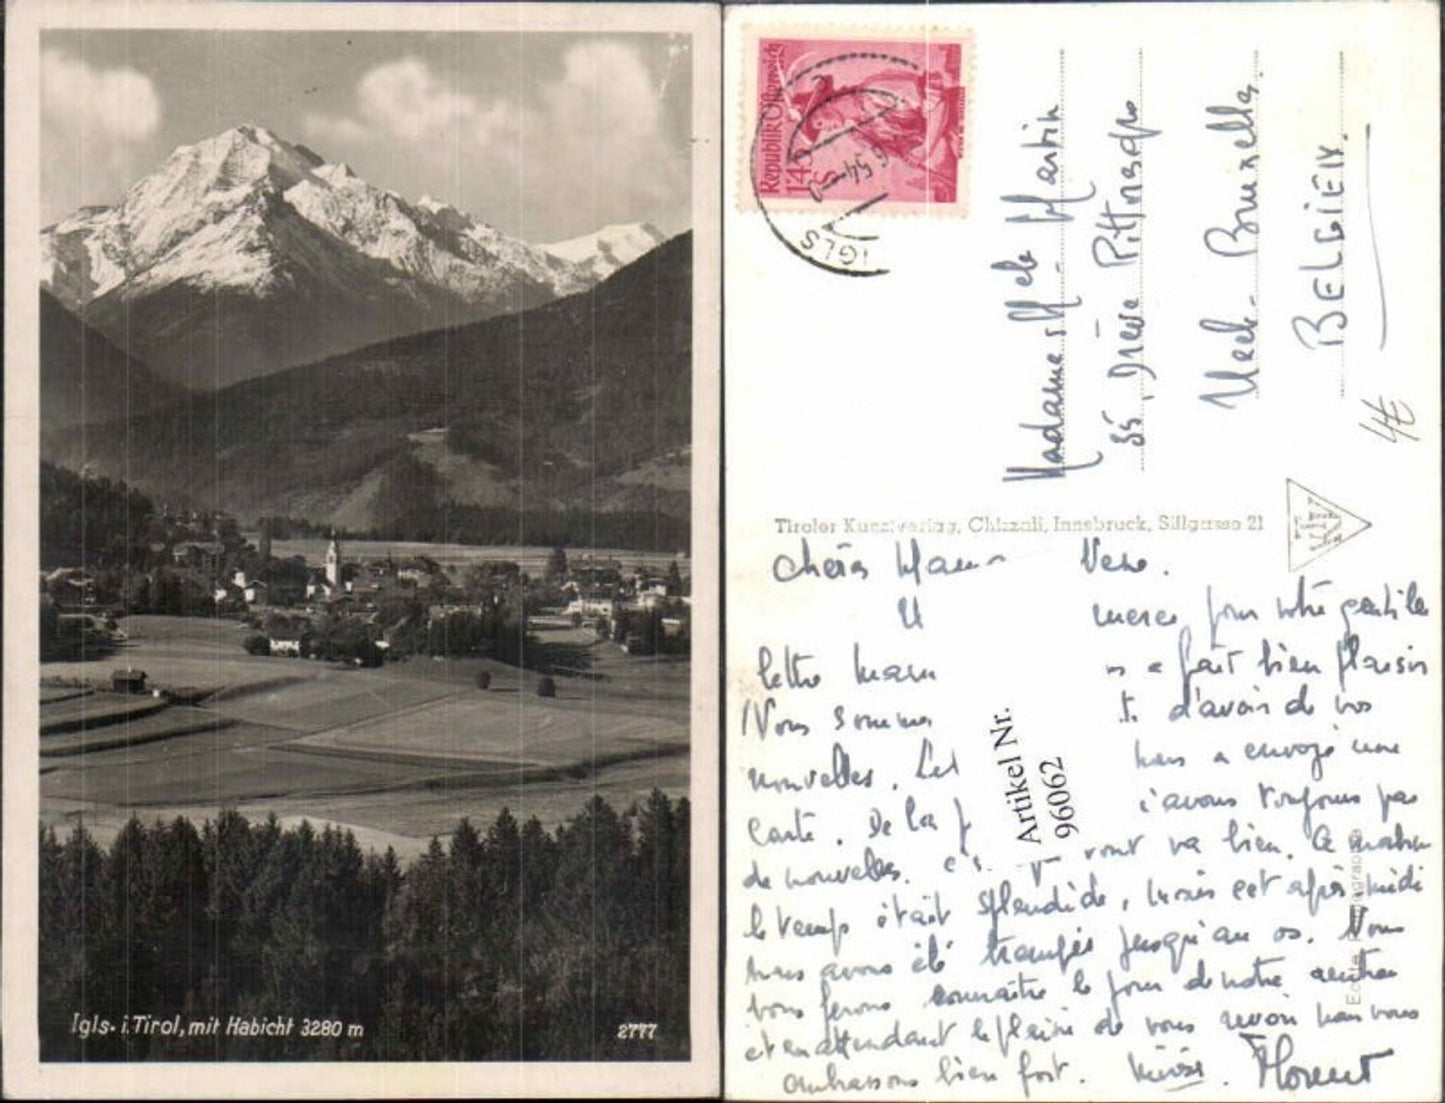 Igls. i. Tirol, mit Habicht 3280 m
2777
Republik Österreich
1.45 S
6.54
IGLS
Madame Martin
35, Drève Pittoresque
Uccle - Bruxelles.
BELGIEN.
4€
Tiroler Kunstverlag, Chizzali, Innsbruck, Sillgasse 21
Artikel Nr.
96062
Chers
merci pour votre gentille
lettre a fait bien plaisir
Nous sommes d'avoir de vos
nouvelles. Les a envoyé une
carte. De la avons toujours pas
de nouvelles. tout va bien. Ce matin
le temps était splendide, mais cet après-midi
nous avons été trempés jusqu'au os. Nous
vous ferons connaître le jour de notre rentrée
et en attendant le plaisir de vous revoir nous vous
embrassons bien fort. Florent